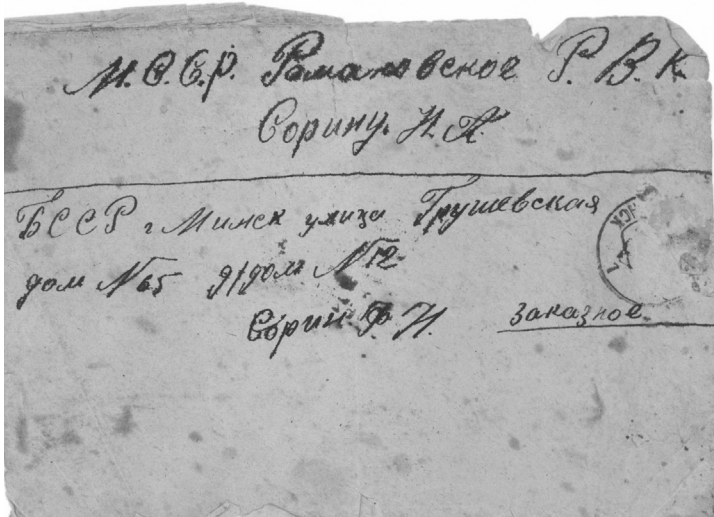 М.С.С.Р. Романовское Р.В.К.
Сорину. И. А.
БССР г Минск улица Грушевская
дом № 65 д/дом № 12
Сорин Ф. И.
Заказное.